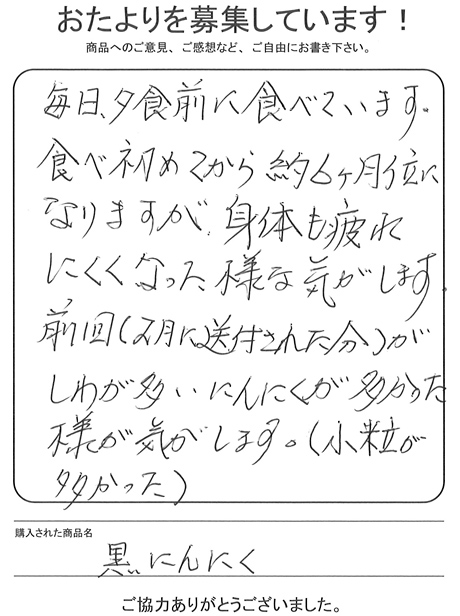 おたよりを募集しています！
商品へのご意見、ご感想など、ご自由にお書き下さい。
毎日、夕食前に食べています。
食べ初めてから約6ヶ月位に
なりますが、身体も疲れ
にくくなった様な気がします。
前回(2月に送付された分)が
しわが多いにんにくが多かった
様が気がします。(小粒が
多かった)
購入された商品名
黒にんにく
ご協力ありがとうございました。